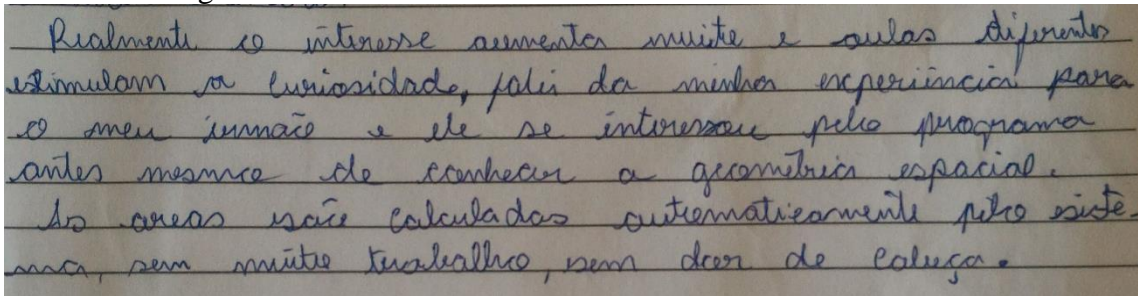 Realmente o interesse aumenta muito e aulas diferentes
estimulam a curiosidade, falei da minha experiência para
o meu irmão e ele se interessou pelo programa
antes mesmo de conhecer a geometria espacial.
As areas são calculadas automaticamente pelo siste-
ma, sem muito trabalho, sem dor de cabeça.